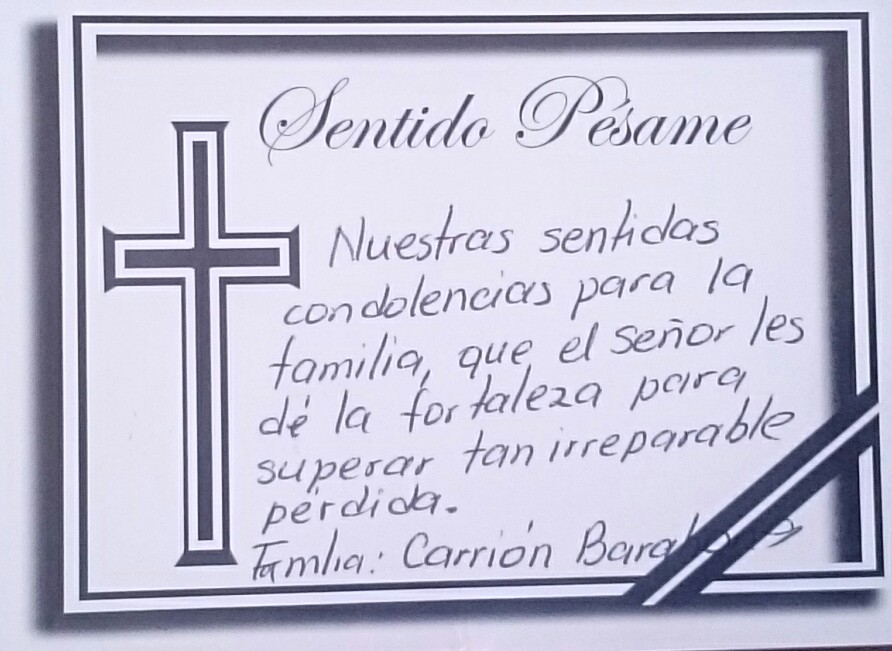 Sentido Pésame
Nuestras sentidas
condolencias para la
familia, que el señor les
dé la fortaleza para
superar tan irreparable
pérdida.
Familia: Carrión